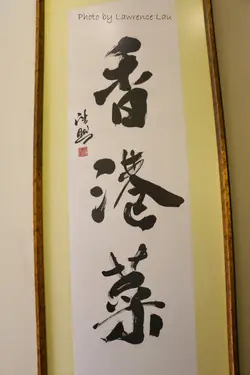 Photo by Lawrence Lau
香港菜